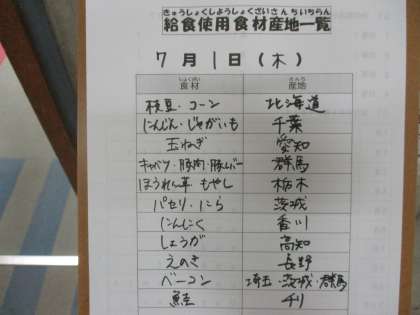 きゅうしょくしようしょくざいさんちいちらん
給食使用食材産地一覧
7月1日(木)
しょくざい さんち
食材 産地
枝豆・コーン 北海道
にんじん・じゃがいも 千葉
玉ねぎ 愛知
キャベツ・豚肉・豚レバー 群馬
ほうれん草 もやし 栃木
パセリ・にら 茨城
にんにく 香川
しょうが 高知
えのき 長野
ベーコン 埼玉・茨城・群馬
鮭 チリ